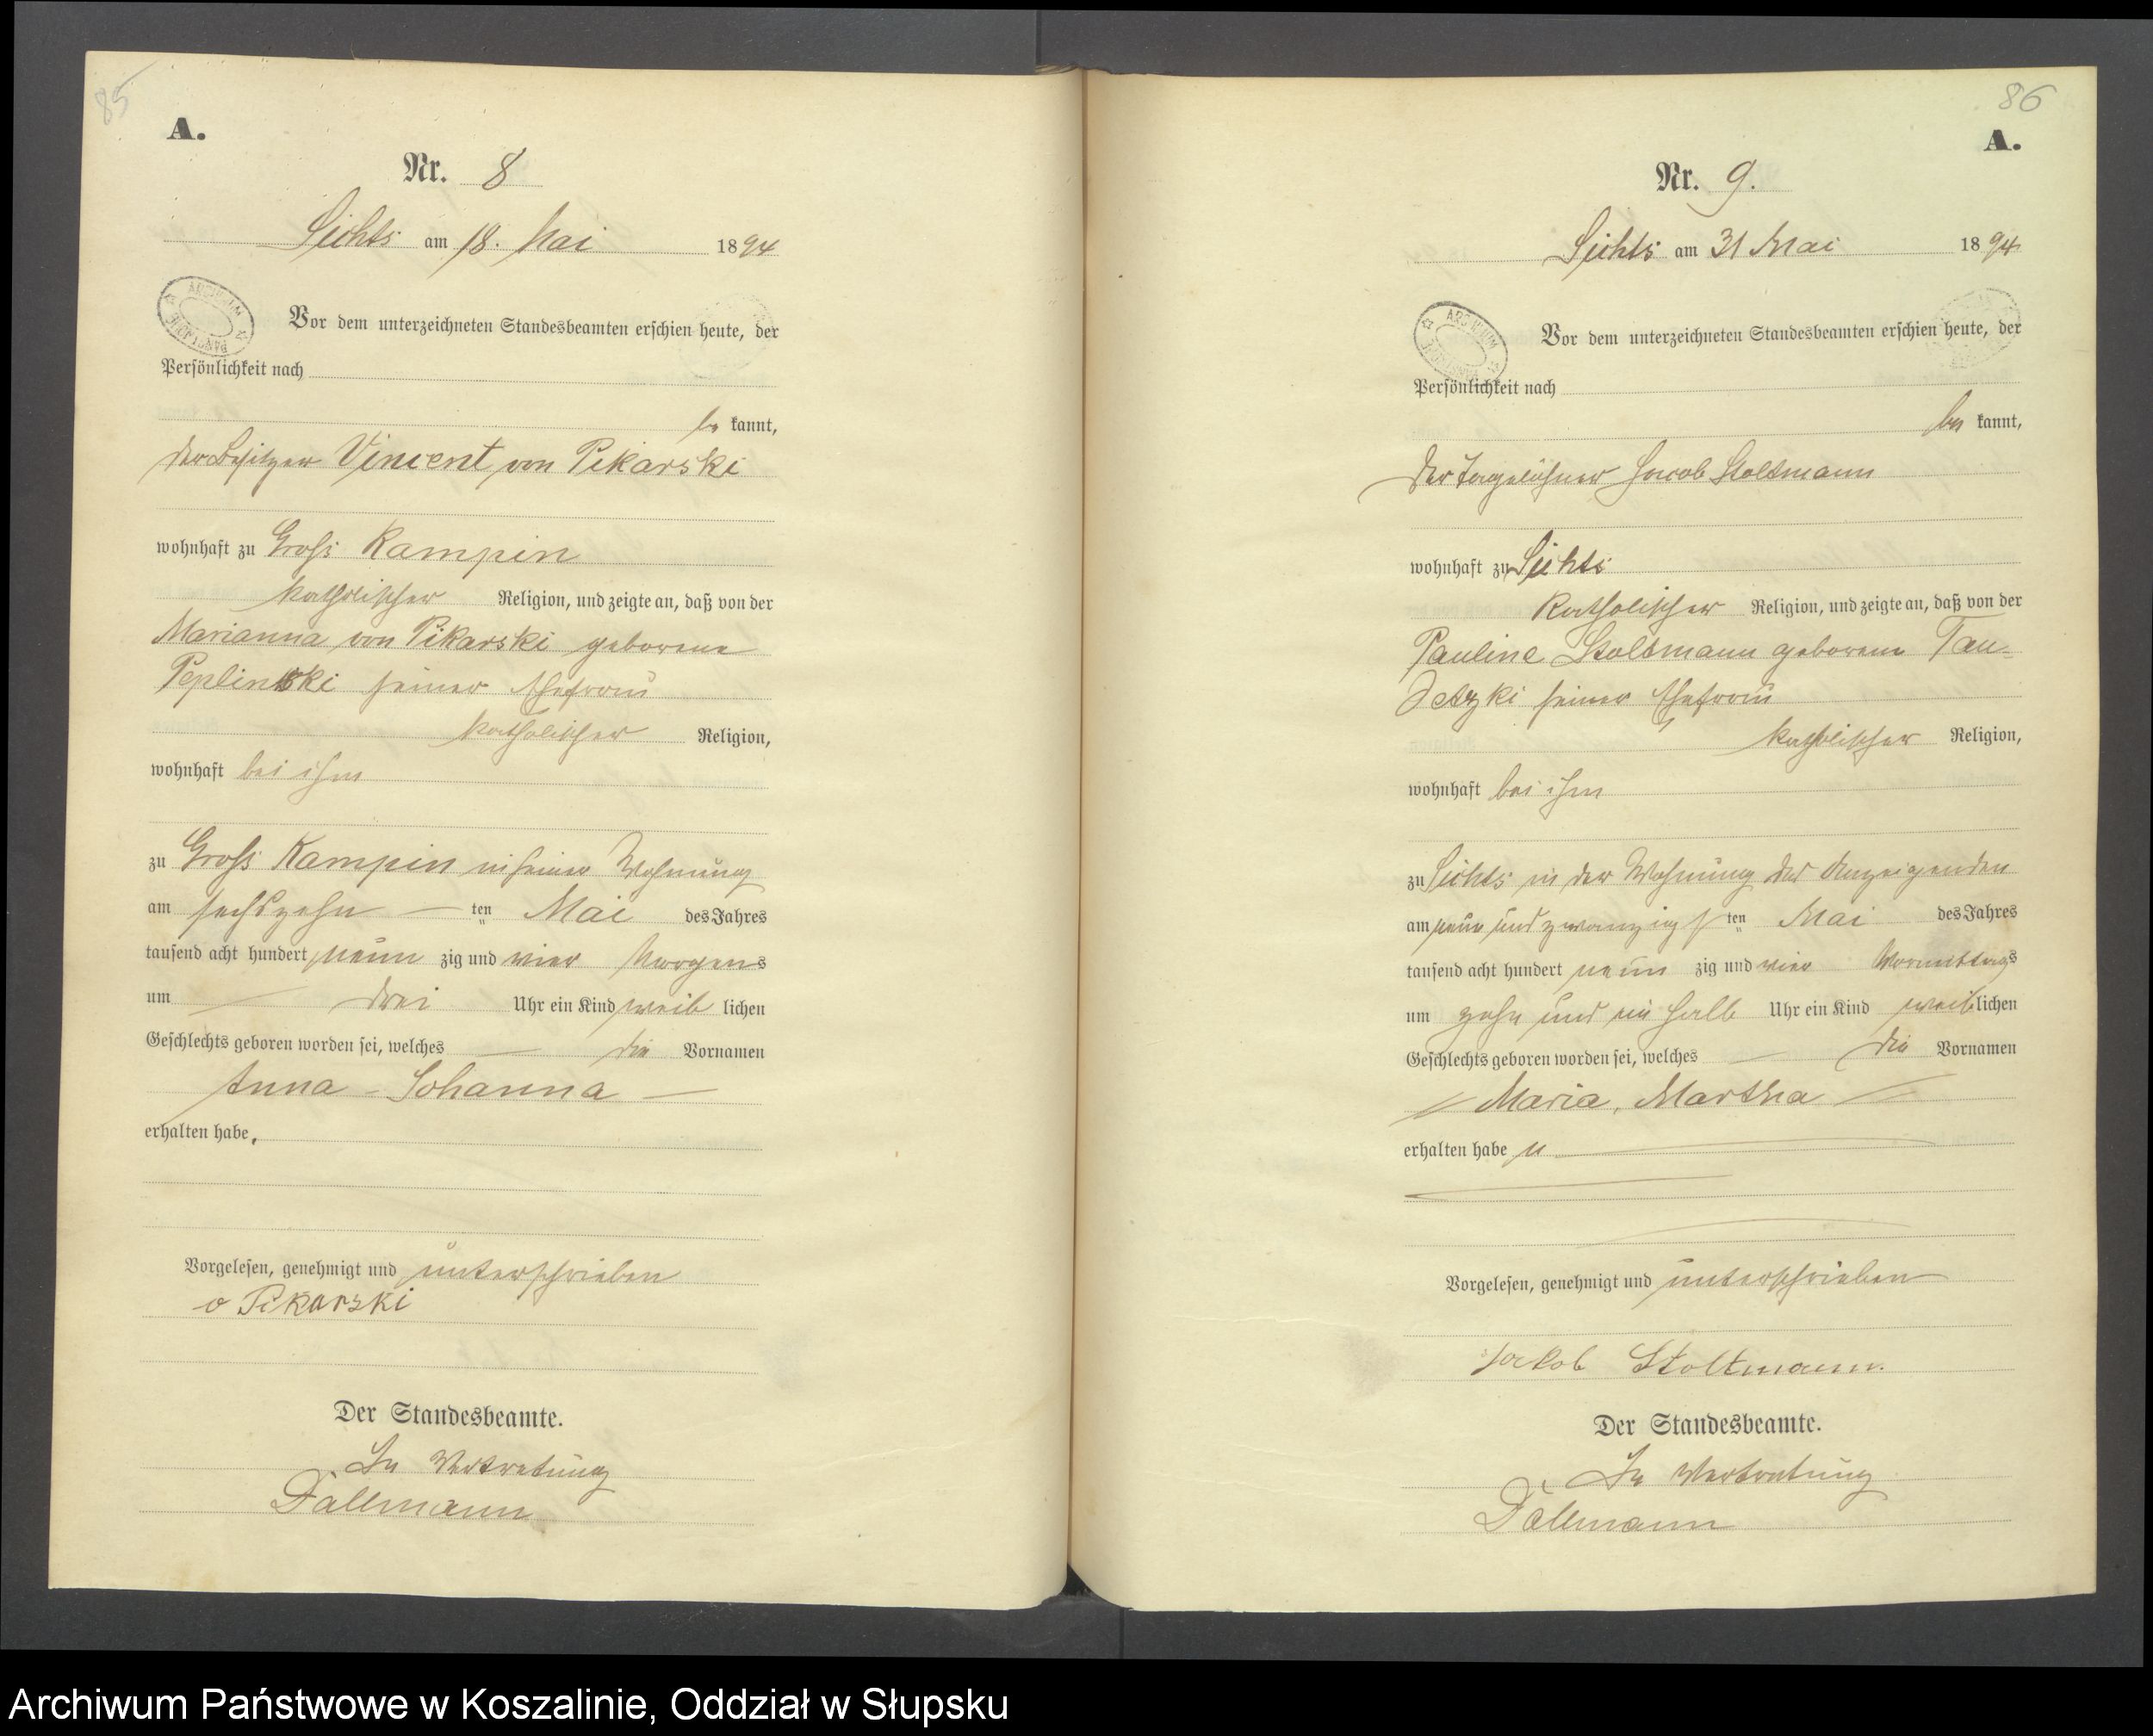 85
A.
Nr. 8
Lichts am 18. Mai 1894
Vor dem unterzeichneten Standesbeamten erschien heute, der
Persönlichkeit nach
be kannt,
der Besitzer Vincent von Pikarski
wohnhaft zu Groß Kampin
katholischer Religion, und zeigte an, daß von der
Marianna von Pikarski geborene
Peplinski seiner Ehefrau
katholischer Religion,
wohnhaft bei ihm
zu Groß Kampin in seiner Wohnung
am sechszehn ten Mai des Jahres
tausend acht hundert neun zig und vier Morgens
um drei Uhr ein Kind weib lichen
Geschlechts geboren worden sei, welches die Vornamen
Anna - Johanna
erhalten habe.
Vorgelesen, genehmigt und unterschrieben
v Pikarski
Der Standesbeamte.
In Vertretung
Dallmann
86
A.
Nr. 9.
Lichts am 31 Mai 1894
Vor dem unterzeichneten Standesbeamten erschien heute, der
Persönlichkeit nach
be kannt,
der Tagelöhner Jacob Stoltmann
wohnhaft zu Lichts
katholischer Religion, und zeigte an, daß von der
Pauline Stoltmann geborene Tan-
detzki seiner Ehefrau
katholischer Religion,
wohnhaft bei ihm
zu Lichts in der Wohnung des Anzeigenden
am neun und zwanzigs ten Mai des Jahres
tausend acht hundert neun zig und vier Vormittags
um zehn und ein halb Uhr ein Kind weiblichen
Geschlechts geboren worden sei, welches die Vornamen
Maria, Martha
erhalten habe n
Vorgelesen, genehmigt und unterschrieben
Jakob Stoltmann.
Der Standesbeamte.
In Vertretung
Dallmann
Archiwum Państwowe w Koszalinie, Oddział w Słupsku